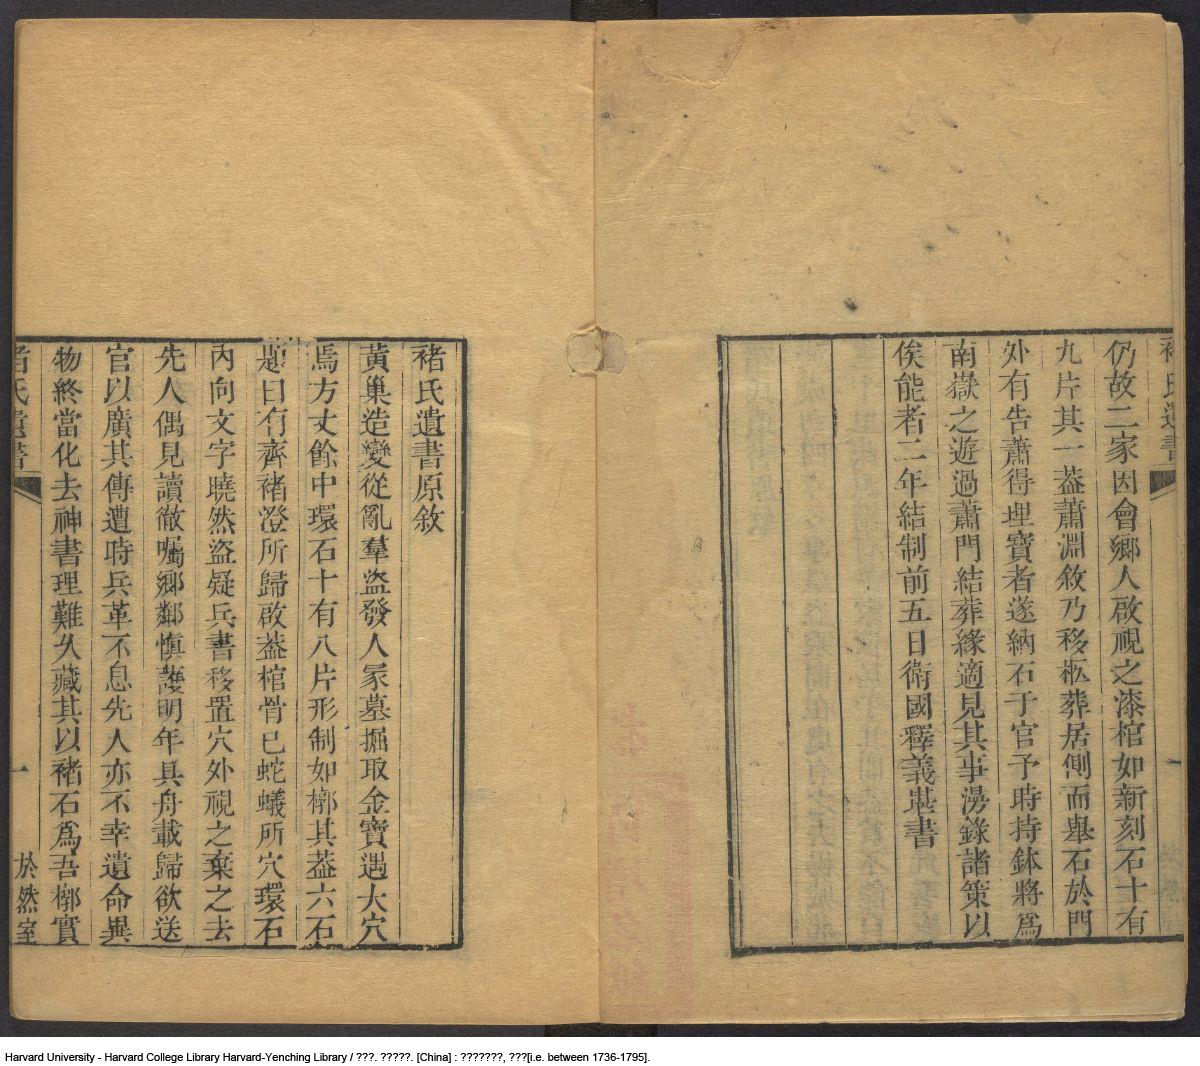 褚氏遺書
一
仍故二家因會鄉人啟視之漆棺如新刻石十有
九片其一葢蕭淵敘乃移柩葬居側而舉石於門
外有告蕭得埋寶者遂納石于官予時持鉢將爲
南嶽之遊過蕭門結葬緣適見其事湯錄諸策以
俟能者二年結制前五日衛國釋義堪書
褚氏遺書原敘
黃巢造變從亂羣盜發人冢墓掘取金寶遇大穴
焉方丈餘中環石十有八片形制如槨其葢六石
題曰有齊褚澄所歸啟葢棺骨已蛇蟻所穴環石
內向文字曉然盜疑兵書移置穴外視之棄之去
先人偶見讀徹囑鄉鄰慎護明年具舟載歸欲送
官以廣其傳遭時兵革不息先人亦不幸遺命異
物終當化去神書理難久藏其以褚石爲吾槨實
褚氏遺書
一
於然室
Harvard University - Harvard College Library Harvard-Yenching Library / ???. ?????. [China] : ???????, ???[i.e. between 1736-1795].